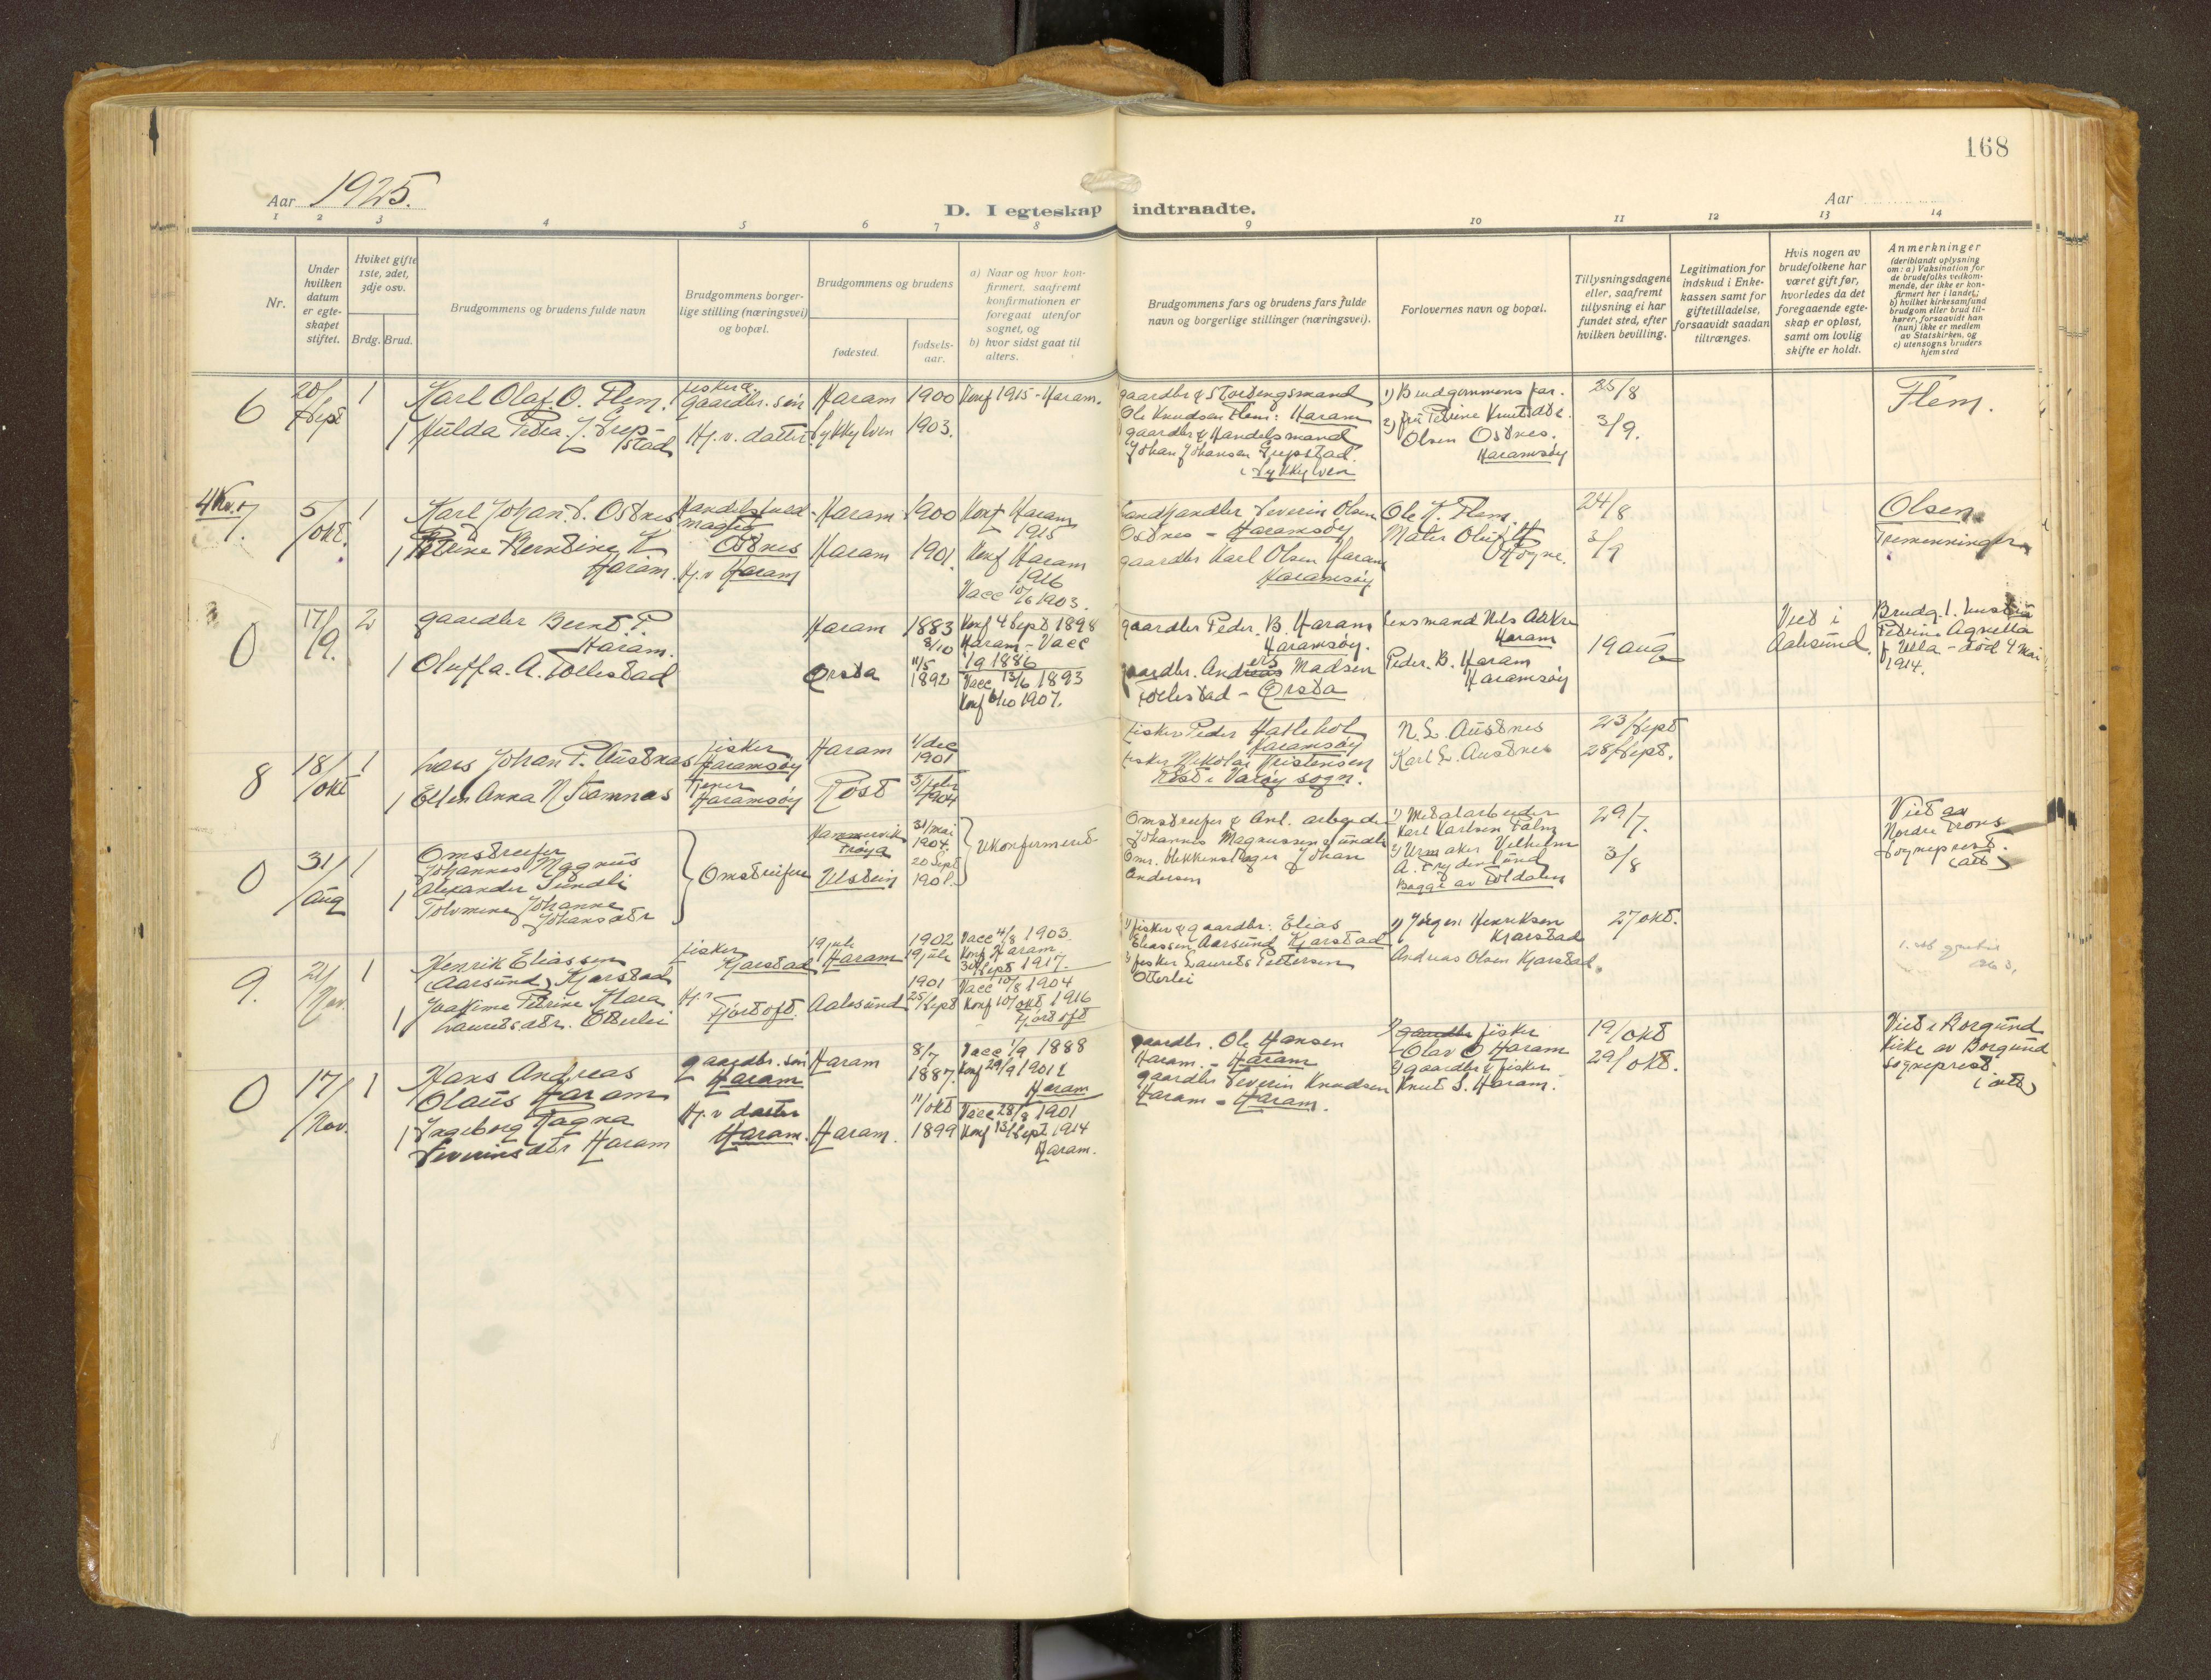 168
Aar 1925.
D. I egteskap indtraadte.
Aar
1 2 3 4 5 6 7 8 9 10 11 12 13 14
Nr.
Under hvilken datum er egteskapet stiftet.
Hviket gifte 1ste, 2det, 3dje osv.
Brdg. Brud.
Brudgommens og brudens fulde navn
Brudgommens borgerlige stilling (næringsvei) og bopæl.
Brudgommens og brudens
fødested.
fødselsaar.
a) Naar og hvor konfirmert, saafremt konfirmationen er foregaat utenfor sognet, og
b) hvor sidst gaat til alters.
Brudgommens fars og brudens fars fulde navn og borgerlige stillinger (næringsvei).
Forlovernes navn og bopæl.
Tillysningsdagene eller, saafremt tillysning ei har fundet sted, efter hvilken bevilling.
Legitimation for indskud i Enkekassen samt for giftetilladelse, forsaavidt saadan tiltrænges.
Hvis nogen av brudefolkene har været gift før, hvorledes da det foregaaende egteskap er opløst, samt om lovlig skifte er holdt.
Anmerkninger
(deriblandt oplysning om: a) Vaksination for de brudefolks vedkommende, der ikke er konfirmert her i landet; b) hvilket kirkesamfund brudgom eller brud tilhører, forsaavidt han (hun) ikke er medlem av Statskirken, og c) utensogns bruders hjemsted
6
20/Sept
1
Karl Olaf O. Flem.
fisker &
gaardbr. søn
Haram
1900
Konf 1915 - Haram.
gaardbr &
Ole Knudsen Flem: Haram
1) Brudgommens far.
25/8
Flem.
1
Hulda Petra J. Grep-
stad
Hj. v. datter
Sykkylven
1903.
gaardbr & Handelsmand
Johan Johansen Grepstad.
i Sykkylven
2) fru Petrine
Olsen Ostnes.
Haramsøy
3/9.
7.
5/okt.
1
Karl Johan S. Ostnes
Ostnes
Haram
1900
Konf Haram
1915
Landhandler Severin Olsen
Ostnes - Haramsøy
Ole K. Flem
24/8
Olsen
Tremenninger
1
Petrine Berntine K
Haram.
Hj. v Haram
Haram
1901.
Konf Haram
1916
Vacc 10/6 1903.
gaardbr Karl Olsen Haram
Haramsøy
Høgne.
3/9
0
17/9.
2
gaardbr Bernt P.
Haram.
Haram
1883
8/10
Konf 4 Sept 1898
Haram - Vacc
1/9 1886
gaardbr Peder B. Haram
Haramsøy.
Lensmand Nils
Haram
19 aug
Viet i
Aalesund.
Brudg. 1. hustru
Petrine Agnetta
f Ulla - död 4 Mai
1914.
1
Oluffa. A. Follestad
Ørsta
11/5
1892
Vacc 13/6 1893
Konf 6/10 1907.
gaardbr. Anders Madsen
Follestad - Ørsta
Peder. B. Haram
Haramsøy
8
18/okt
1
Lars Johan P. Austnes
fisker
Haramsøy
Haram
1/dec
1901
fisker Peder Hatlehol
Haramsøy
N. L. Austnes
23/Sept
1
Ellen Anna N Stamnes
Haramsøy
Røst
1904
fisker Nikolai Kristensen
Røst i Værøy sogn.
Karl L. Austnes
28/Sept.
0
31/aug
1
Omstreifer
Johannes Magnus
Alexander Sundli
Omstreifere
Frøya
31/mai
1904.
Ukonfirmert
Omstreifer & Anl. arbeider
Johannes Magnussen Sundli
1) Metalarbeider
Karl Karlsen
29/7.
Viet av
Nordre
Sogneprest.
1
Johanne
Johansdtr
Ulstein
20 Sept
1901.
Omr. Blikkenslager Johan
Andersen
2) Urmaker Vilhelm
A.
3/8
9.
21/Nov.
1
Henrik Eliassen
(Aarsund) Kjerstad
fisker
Kjærstad
Haram
1902
19 juli
Vacc 4/8 1903
Konf Haram
30/Sept 1917.
1) fisker & gaardbr: Elias
Eliassen Aarsund Kjærstad
1) Jørgen Henriksen
Kjærstad
27 okt.
1
Joakime Petrine Klara
Lauritsdtr. Otterlei
Hj. v
Fjørtoft.
Aalesund
1901
25/Sept
Vacc 10/8 1904
Konf 10/okt 1916
Fjørtoft
2) fisker Laurits Pettersen
Otterlei
Andreas Olsen Kjærstad.
0
17/Nov.
1
Hans Andreas
Olaus Haram
gaardbr. søn
Haram
Haram
8/7
1887.
Vacc 1/9 1888
Haram
gaardbr. Ole Hansen
Haram - Haram
1) fisker
Olav O Haram
19/okt
Viet i Borgund
Kirke av Borgund
sogneprest
1
Ingeborg Ragna
Severinsdtr Haram
Hj. v datter
Haram.
Haram.
11/okt
1899
Vacc 28/8 1901
Konf 13/Sept 1914
Haram.
gaardbr Severin Knudsen
Haram - Haram.
2) gaardbr & fisker
Knut S. Haram.
29/okt.